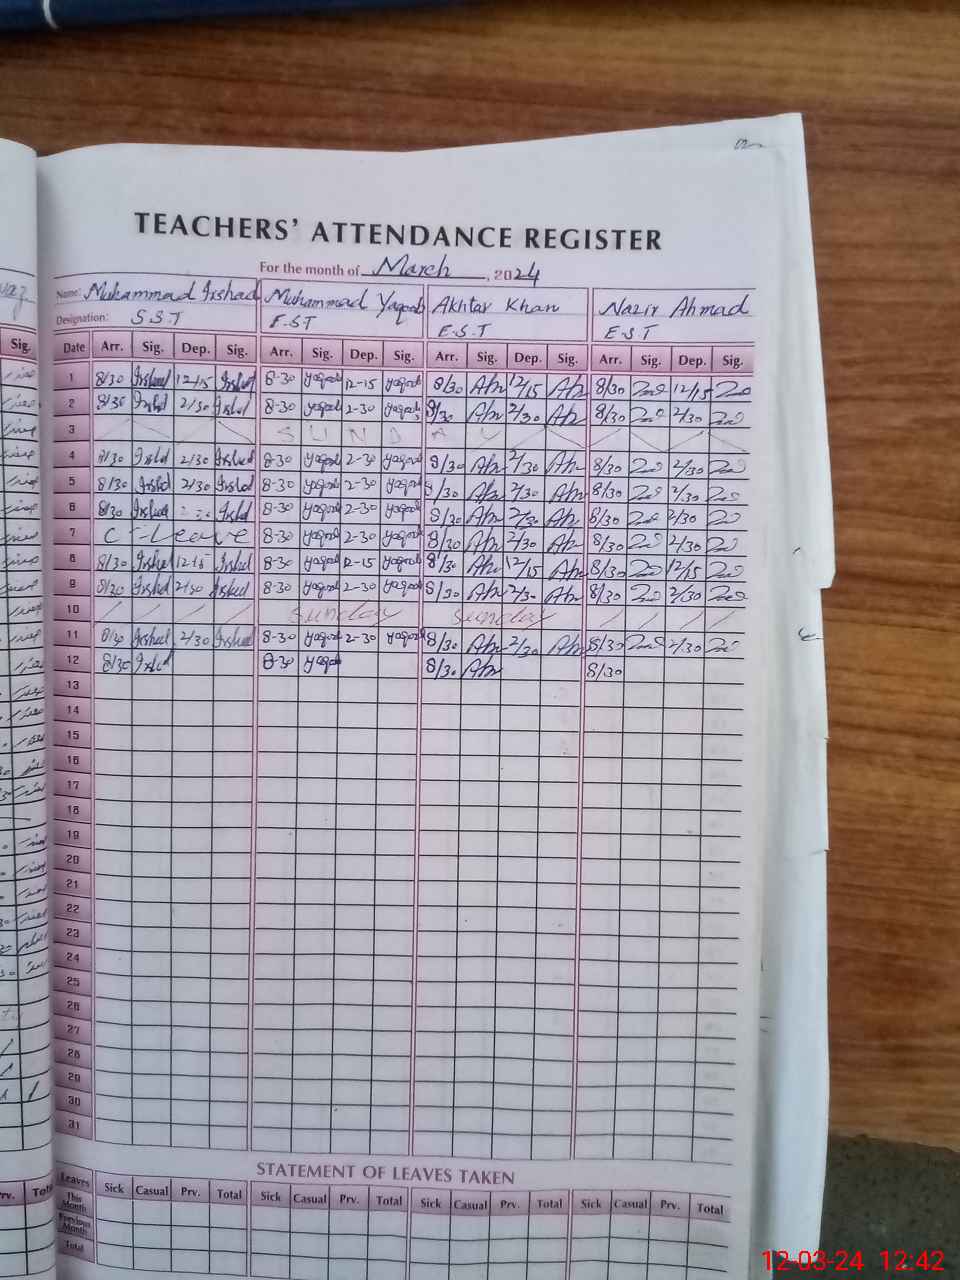 TEACHERS' ATTENDANCE REGISTER
For the month of March, 2024
Name: Muhammad Irshad Muhammad Yaqoob Akhtar Khan Nazir Ahmad
Designation: S.S.T E.S.T E.S.T E.S.T
Sig. Date Arr. Sig. Dep. Sig. Arr. Sig. Dep. Sig. Arr. Sig. Dep. Sig. Arr. Sig. Dep. Sig.
1 8/30 Irshad 12/15 Irshad 8-30 yaqoob 12-15 yaqoob 8/30 12/15 8/30 12/15
2 8/30 Irshd 2/30 Irshd 8-30 yaqoob 2-30 yaqoob 8/30 2/30 8/30 2/30
3 SUNDAY
4 8/30 Irshd 2/30 Irshad 8-30 yaqoob 2-30 yaqoob 8/30 2/30 8/30 2/30
5 8/30 Irshd 2/30 Irshad 8-30 yaqoob 2-30 yaqoob 8/30 2/30 8/30 2/30
6 8/30 Irshad Irshd 8-30 yaqoob 2-30 yaqoob 8/30 2/30 8/30 2/30
7 C-Leave 8-30 yaqoob 2-30 yaqoob 8/30 2/30 8/30 2/30
8 8/30 Irshad 12-15 Irshad 8-30 yaqoob 12-15 yaqoob 8/30 12/15 8/30 12/15
9 8/30 Irshad 2/30 Irshad 8-30 yaqoob 2-30 yaqoob 8/30 2/30 8/30 2/30
10 Sunday Sunday
11 8/30 Irshad 2/30 Irshad 8-30 yaqoob 2-30 yaqoob 8/30 2/30 8/30 2/30
12 8/30 Irshd 8-30 yaqoob 8/30 8/30
13
14
15
16
17
18
19
20
21
22
23
24
25
26
27
28
29
30
31
STATEMENT OF LEAVES TAKEN
Prv. Leaves Sick Casual Prv. Total Sick Casual Prv. Total Sick Casual Prv. Total Sick Casual Prv. Total
This Month
Previous Month
Total
12-03-24 12:42